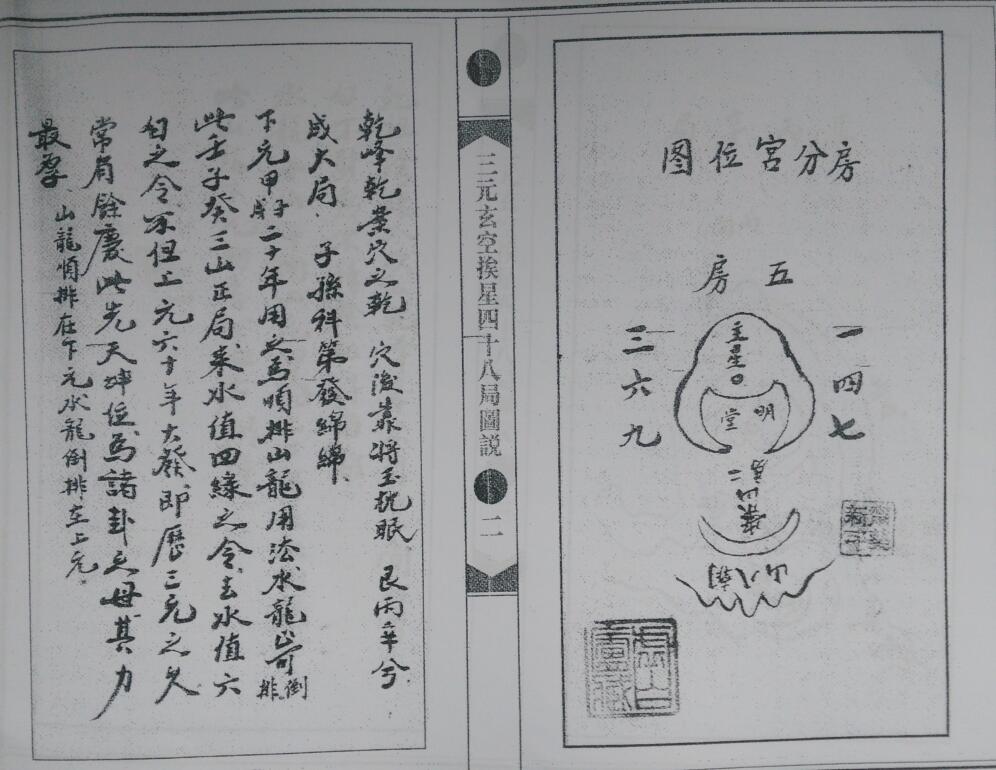 房分宮位图
五房
一四七
三六九
主星
明堂
二
三元玄空挨星四十八局圖説
二
乾峰乾巢穴之乾 穴後靠將玉枕眠 艮丙辛兮
成大局 子孫科第發綿綿
下元甲子戌二十年用之為順排山龍用法水龍倒排
此壬子癸三山正局来水值四綠之令去水值六
白之令不但上元六十年大發即歷三元之久
常有餘慶此先天坤位為諸卦之母其力
最厚 山龍順排在下元水龍倒排在上元